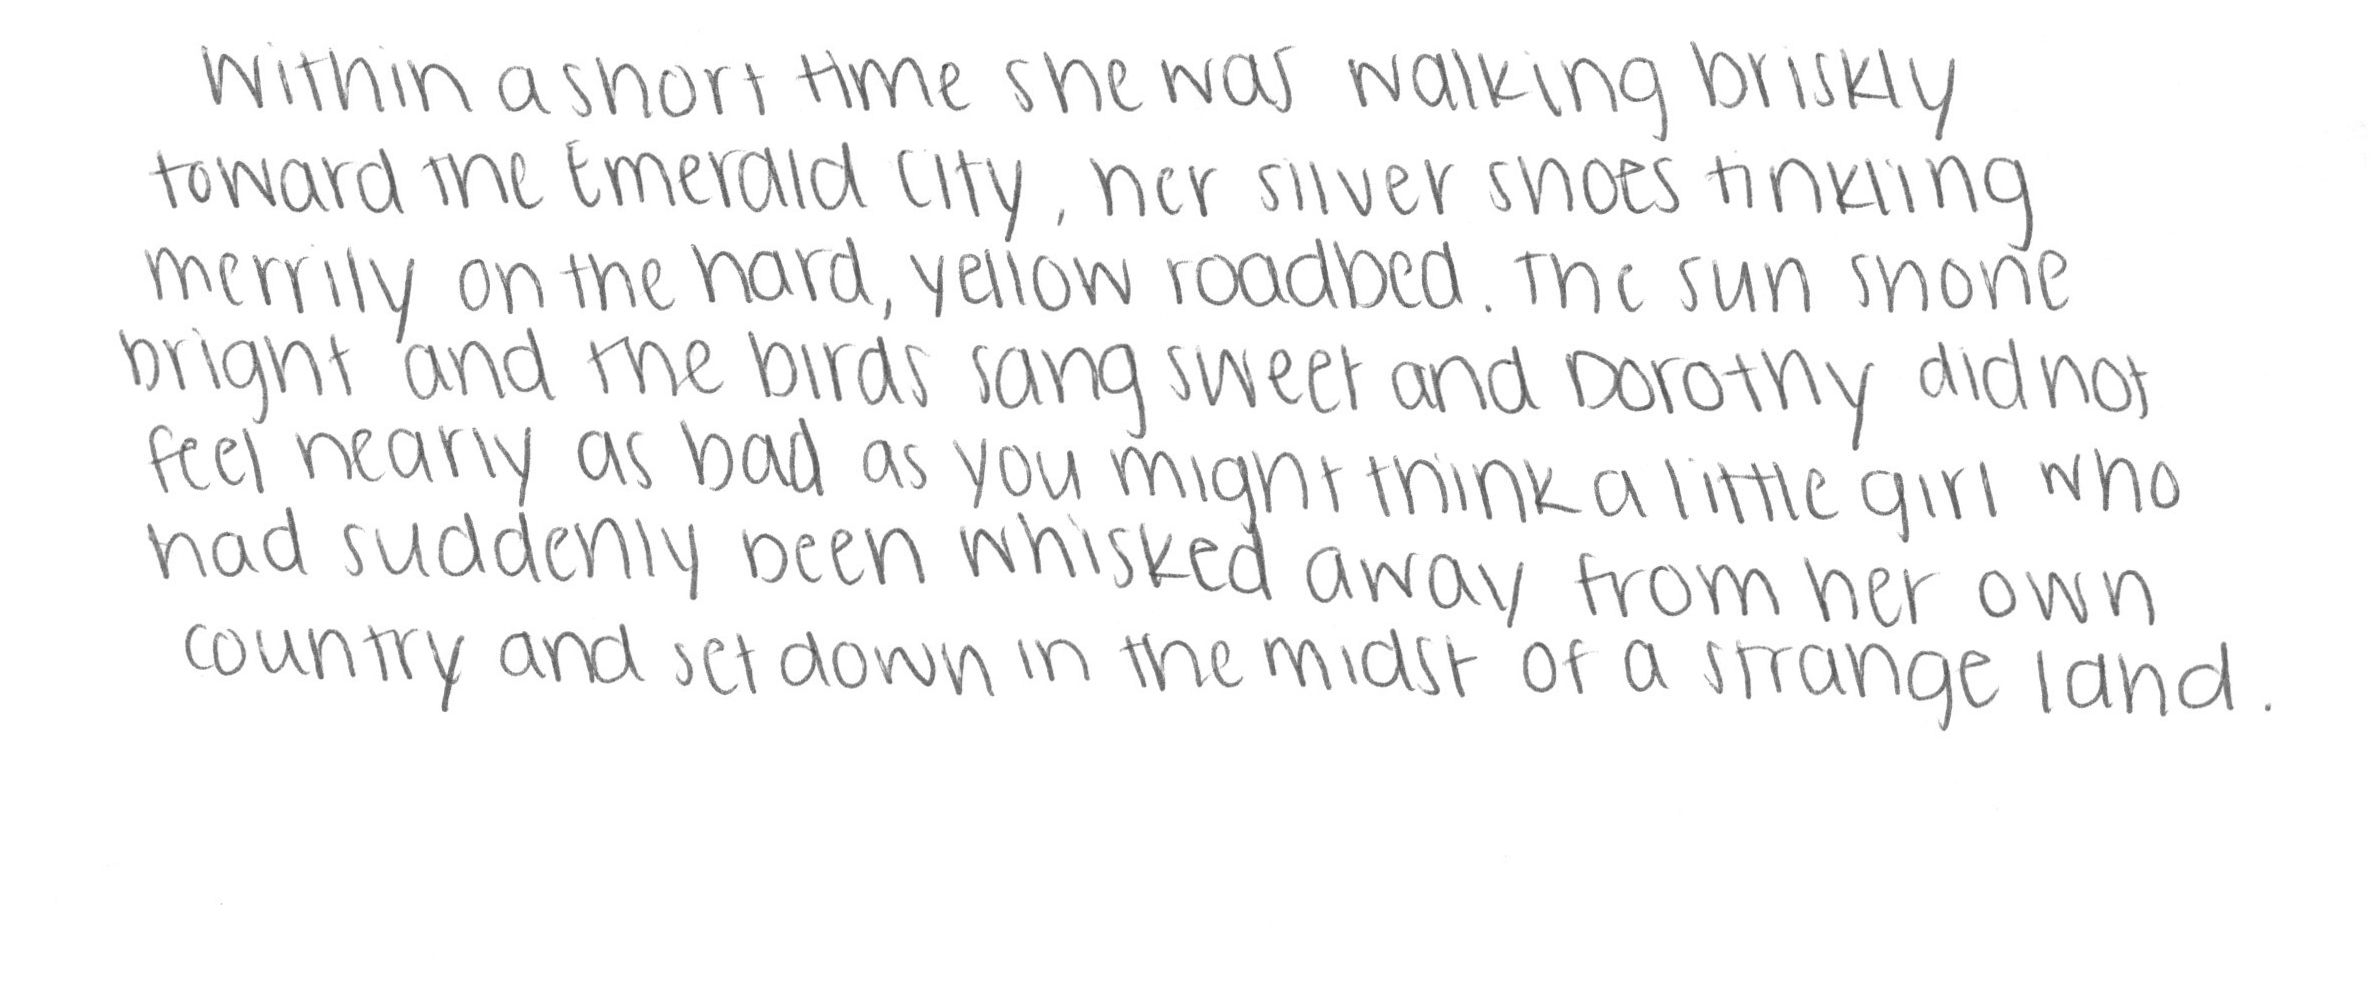 Within a short time she was walking briskly
toward the Emerald City, her silver shoes tinkling
merrily on the hard, yellow roadbed. The sun shone
bright and the birds sang sweet and Dorothy did not
feel nearly as bad as you might think a little girl who
had suddenly been whisked away from her own
country and set down in the midst of a strange land.